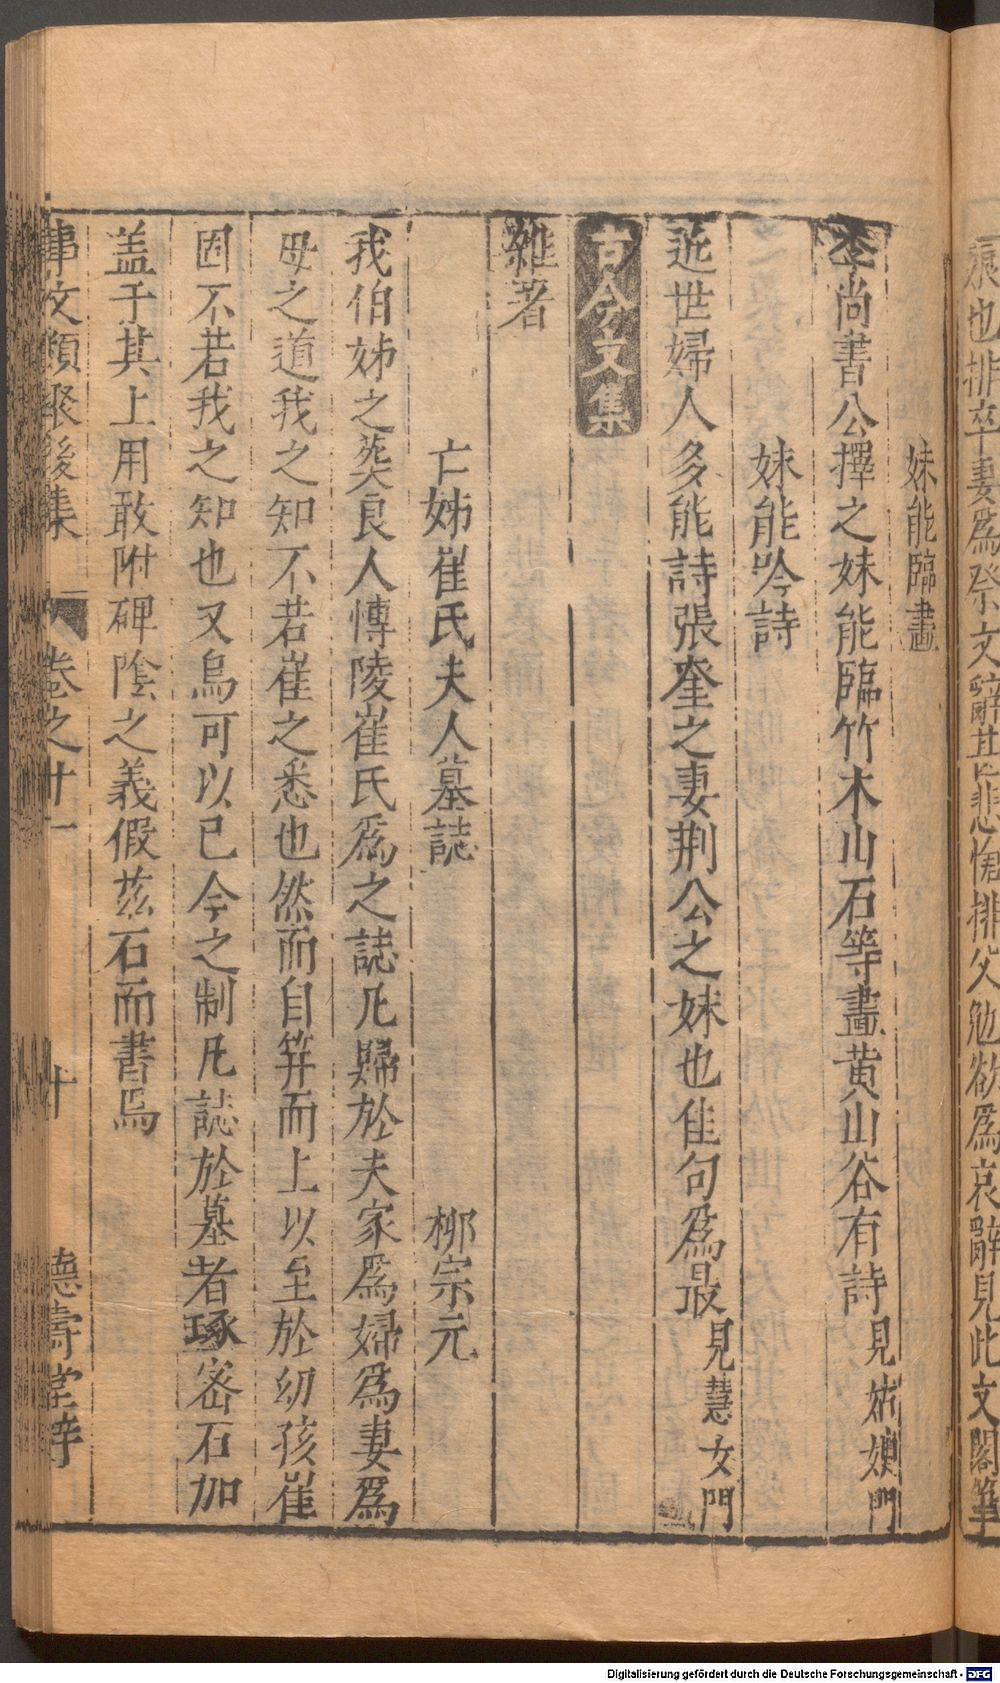 痕也排卒妻爲祭文辭甚悲愴排父勉欲爲哀辭見此文閣筆
妹能臨畫
李尚書公擇之妹能臨竹木山石等畫黄山谷有詩見姑嫂門
妹能吟詩
近世婦人多能詩張奎之妻荆公之妹也佳句爲最見慧女門
古今文集
雜著
亡姊崔氏夫人墓誌 柳宗元
我伯姊之葬良人博陵崔氏爲之誌凡歸於夫家爲婦爲妻爲
母之道我之知不若崔之悉也然而自筓而上以至於幼孩崔
固不若我之知也又烏可以已今之制凡誌於墓者琢密石加
盖于其上用敢附碑陰之義假茲石而書焉
事文類聚後集 卷之十一 十 德壽堂梓
Digitalisierung gefördert durch die Deutsche Forschungsgemeinschaft - DFG